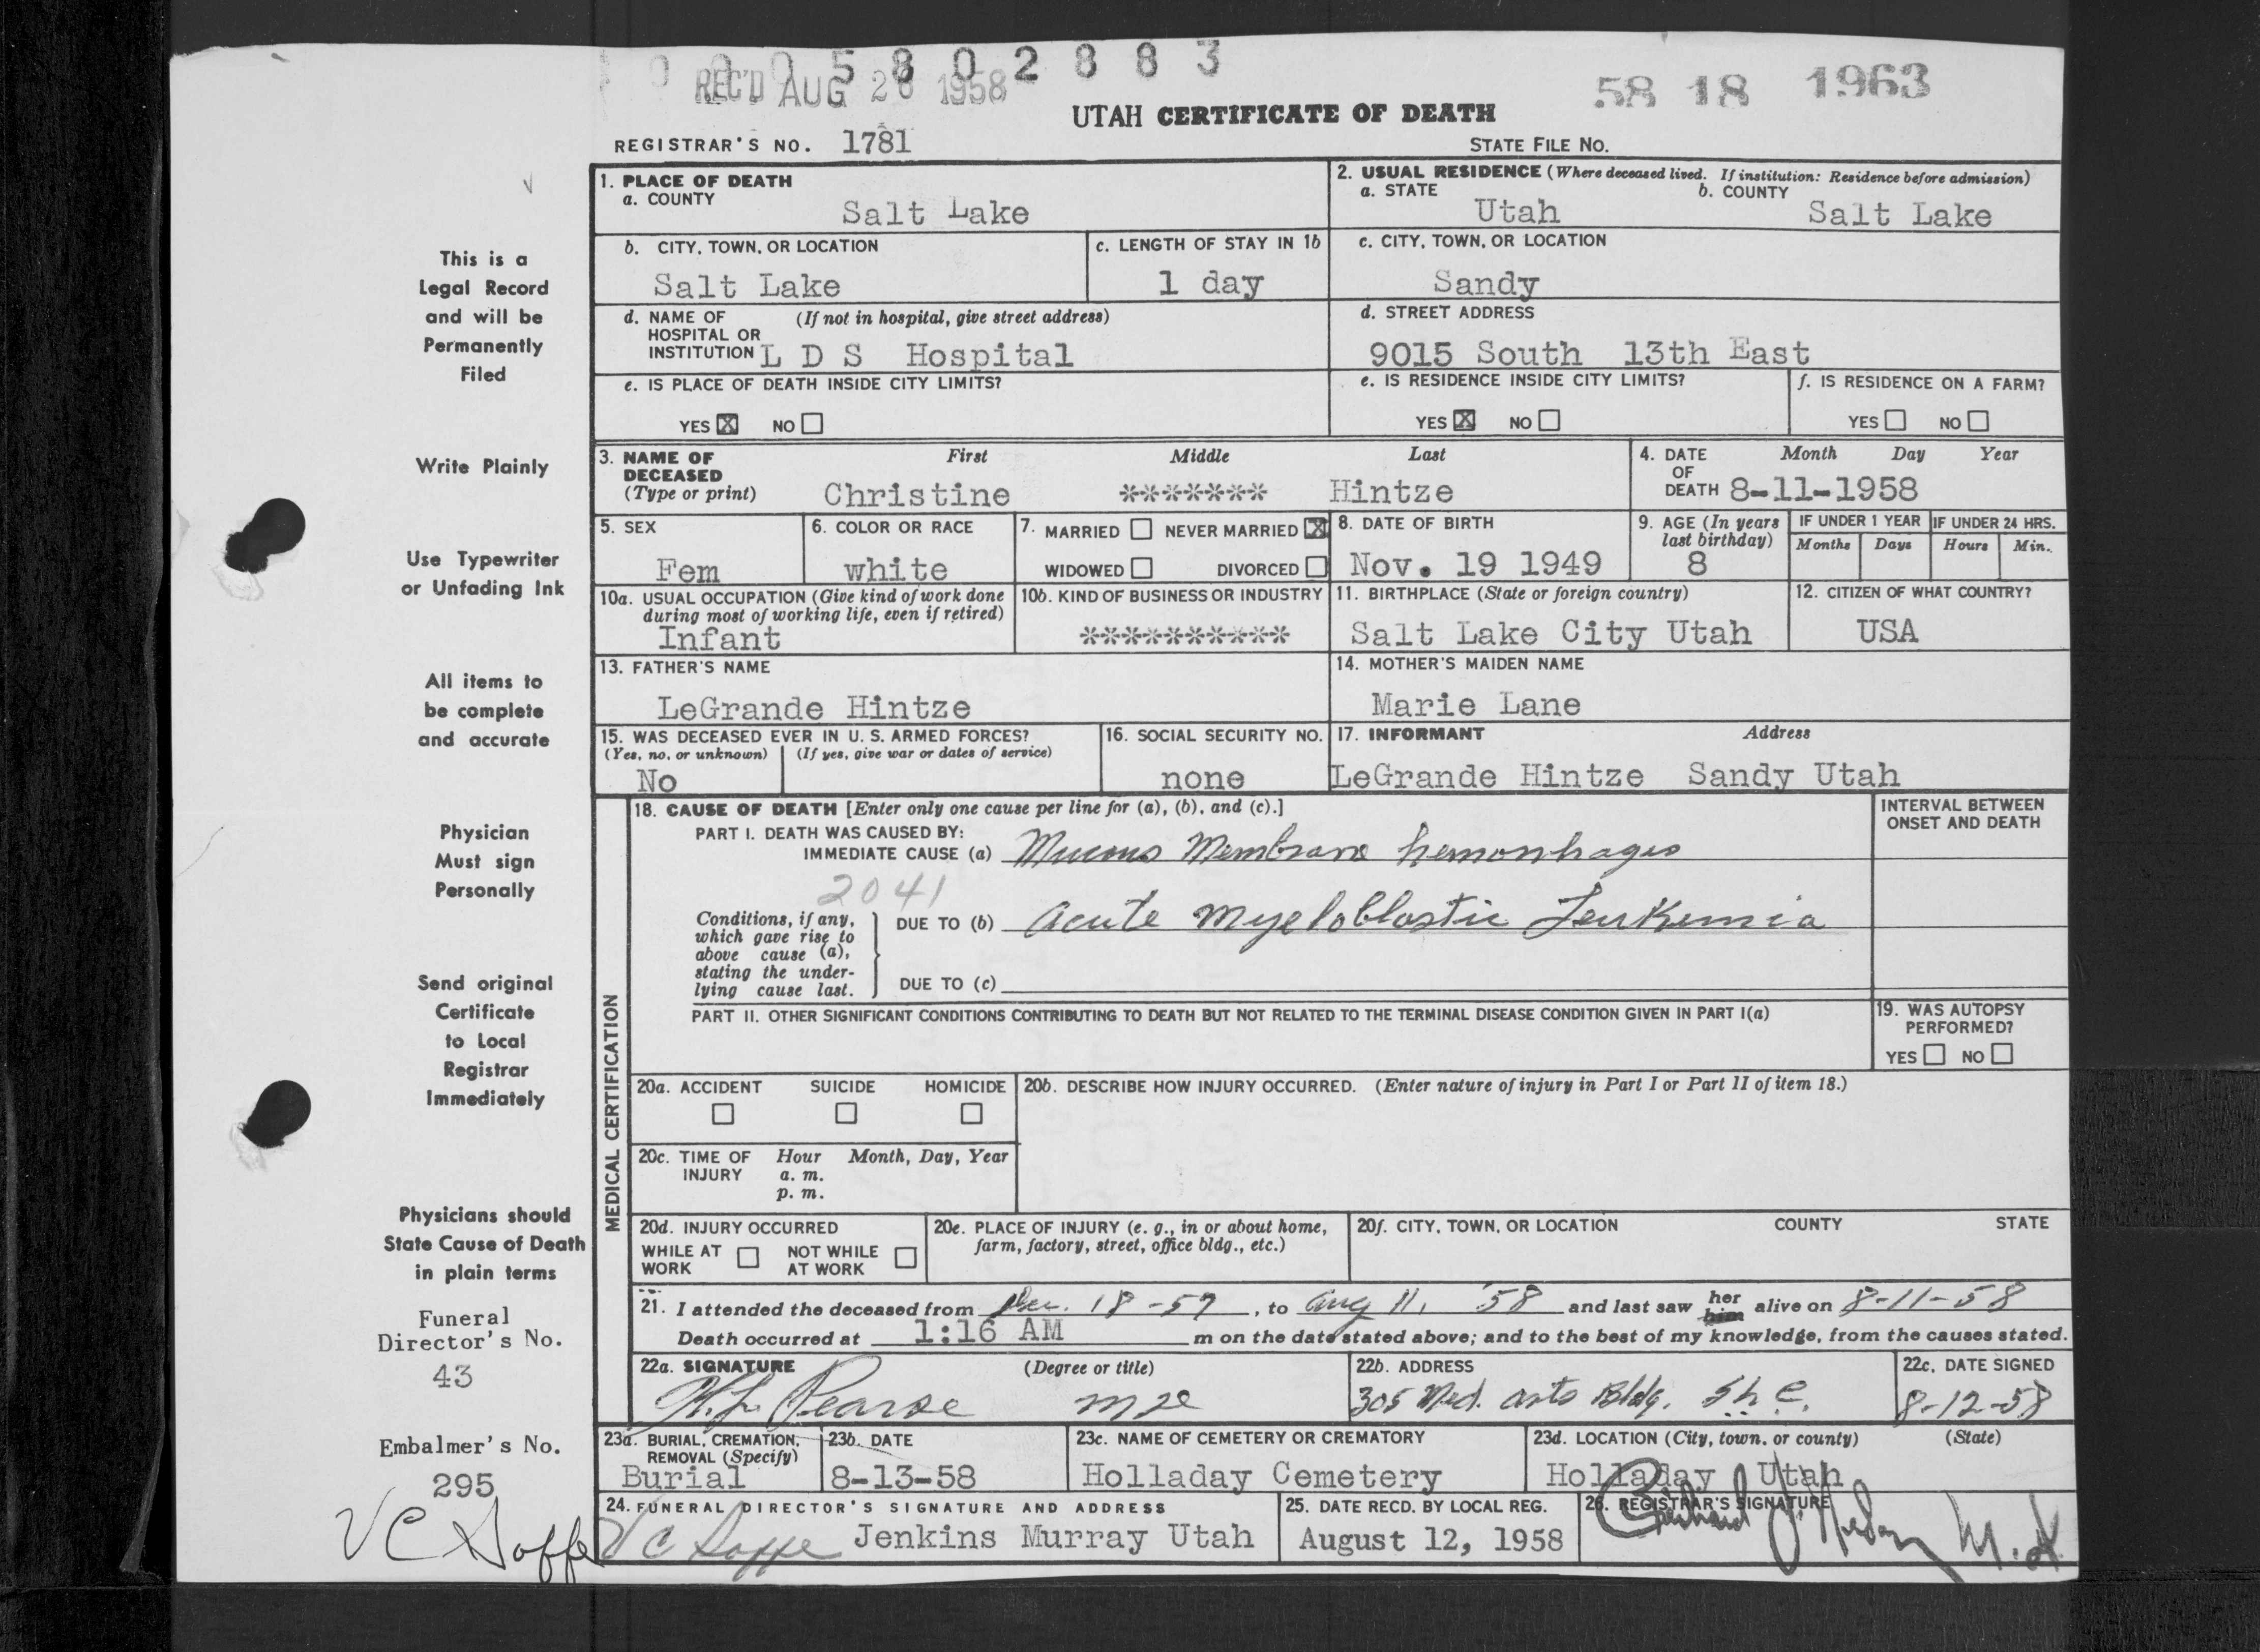 0 0 0 5 8 0 2 8 8 3
REC'D AUG 26 1958
58 18 1963
UTAH CERTIFICATE OF DEATH
REGISTRAR'S NO. 1781
STATE FILE NO.
This is a
Legal Record
and will be
Permanently
Filed
Write Plainly
Use Typewriter
or Unfading Ink
All items to
be complete
and accurate
Physician
Must sign
Personally
Send original
Certificate
to Local
Registrar
Immediately
Physicians should
State Cause of Death
in plain terms
Funeral
Director's No.
43
Embalmer's No.
295
V C Soffe
1. PLACE OF DEATH
a. COUNTY
Salt Lake
2. USUAL RESIDENCE (Where deceased lived. If institution: Residence before admission)
a. STATE b. COUNTY
Utah Salt Lake
b. CITY, TOWN, OR LOCATION
Salt Lake
c. LENGTH OF STAY IN 1b
1 day
c. CITY, TOWN, OR LOCATION
Sandy
d. NAME OF (If not in hospital, give street address)
HOSPITAL OR
INSTITUTION L D S Hospital
d. STREET ADDRESS
9015 South 13th East
e. IS PLACE OF DEATH INSIDE CITY LIMITS?
YES X NO
e. IS RESIDENCE INSIDE CITY LIMITS?
YES X NO
f. IS RESIDENCE ON A FARM?
YES NO
3. NAME OF DECEASED
(Type or print)
First Middle Last
Christine ******* Hintze
4. DATE OF DEATH
Month Day Year
8-11-1958
5. SEX
Fem
6. COLOR OR RACE
white
7. MARRIED NEVER MARRIED X
WIDOWED DIVORCED
8. DATE OF BIRTH
Nov. 19 1949
9. AGE (In years
last birthday)
8
IF UNDER 1 YEAR
Months Days
IF UNDER 24 HRS.
Hours Min.
10a. USUAL OCCUPATION (Give kind of work done
during most of working life, even if retired)
Infant
10b. KIND OF BUSINESS OR INDUSTRY
**********
11. BIRTHPLACE (State or foreign country)
Salt Lake City Utah
12. CITIZEN OF WHAT COUNTRY?
USA
13. FATHER'S NAME
LeGrande Hintze
14. MOTHER'S MAIDEN NAME
Marie Lane
15. WAS DECEASED EVER IN U. S. ARMED FORCES?
(Yes, no, or unknown) (If yes, give war or dates of service)
No
16. SOCIAL SECURITY NO.
none
17. INFORMANT Address
LeGrande Hintze Sandy Utah
MEDICAL CERTIFICATION
18. CAUSE OF DEATH [Enter only one cause per line for (a), (b), and (c).]
INTERVAL BETWEEN
ONSET AND DEATH
PART I. DEATH WAS CAUSED BY:
IMMEDIATE CAUSE (a) Mucous Membrane hemorrhages
2041
Conditions, if any,
which gave rise to
above cause (a),
stating the under-
lying cause last.
DUE TO (b) Acute Myeloblastic Leukemia
DUE TO (c)
PART II. OTHER SIGNIFICANT CONDITIONS CONTRIBUTING TO DEATH BUT NOT RELATED TO THE TERMINAL DISEASE CONDITION GIVEN IN PART I(a)
19. WAS AUTOPSY
PERFORMED?
YES NO
20a. ACCIDENT SUICIDE HOMICIDE
20b. DESCRIBE HOW INJURY OCCURRED. (Enter nature of injury in Part I or Part II of item 18.)
20c. TIME OF INJURY
Hour Month, Day, Year
a. m.
p. m.
20d. INJURY OCCURRED
WHILE AT WORK NOT WHILE AT WORK
20e. PLACE OF INJURY (e. g., in or about home,
farm, factory, street, office bldg., etc.)
20f. CITY, TOWN, OR LOCATION COUNTY STATE
21. I attended the deceased from Dec. 18-57, to Aug 11, '58 and last saw her him alive on 8-11-58
Death occurred at 1:16 AM m on the date stated above; and to the best of my knowledge, from the causes stated.
22a. SIGNATURE (Degree or title)
H.L. Pearse
22b. ADDRESS
305 Med. Arts Bldg. S L C.
22c. DATE SIGNED
8-12-58
23a. BURIAL, CREMATION,
REMOVAL (Specify)
Burial
23b. DATE
8-13-58
23c. NAME OF CEMETERY OR CREMATORY
Holladay Cemetery
23d. LOCATION (City, town, or county) (State)
Holladay Utah
24. FUNERAL DIRECTOR'S SIGNATURE AND ADDRESS
V C Soffe Jenkins Murray Utah
25. DATE RECD. BY LOCAL REG.
August 12, 1958
26. REGISTRAR'S SIGNATURE